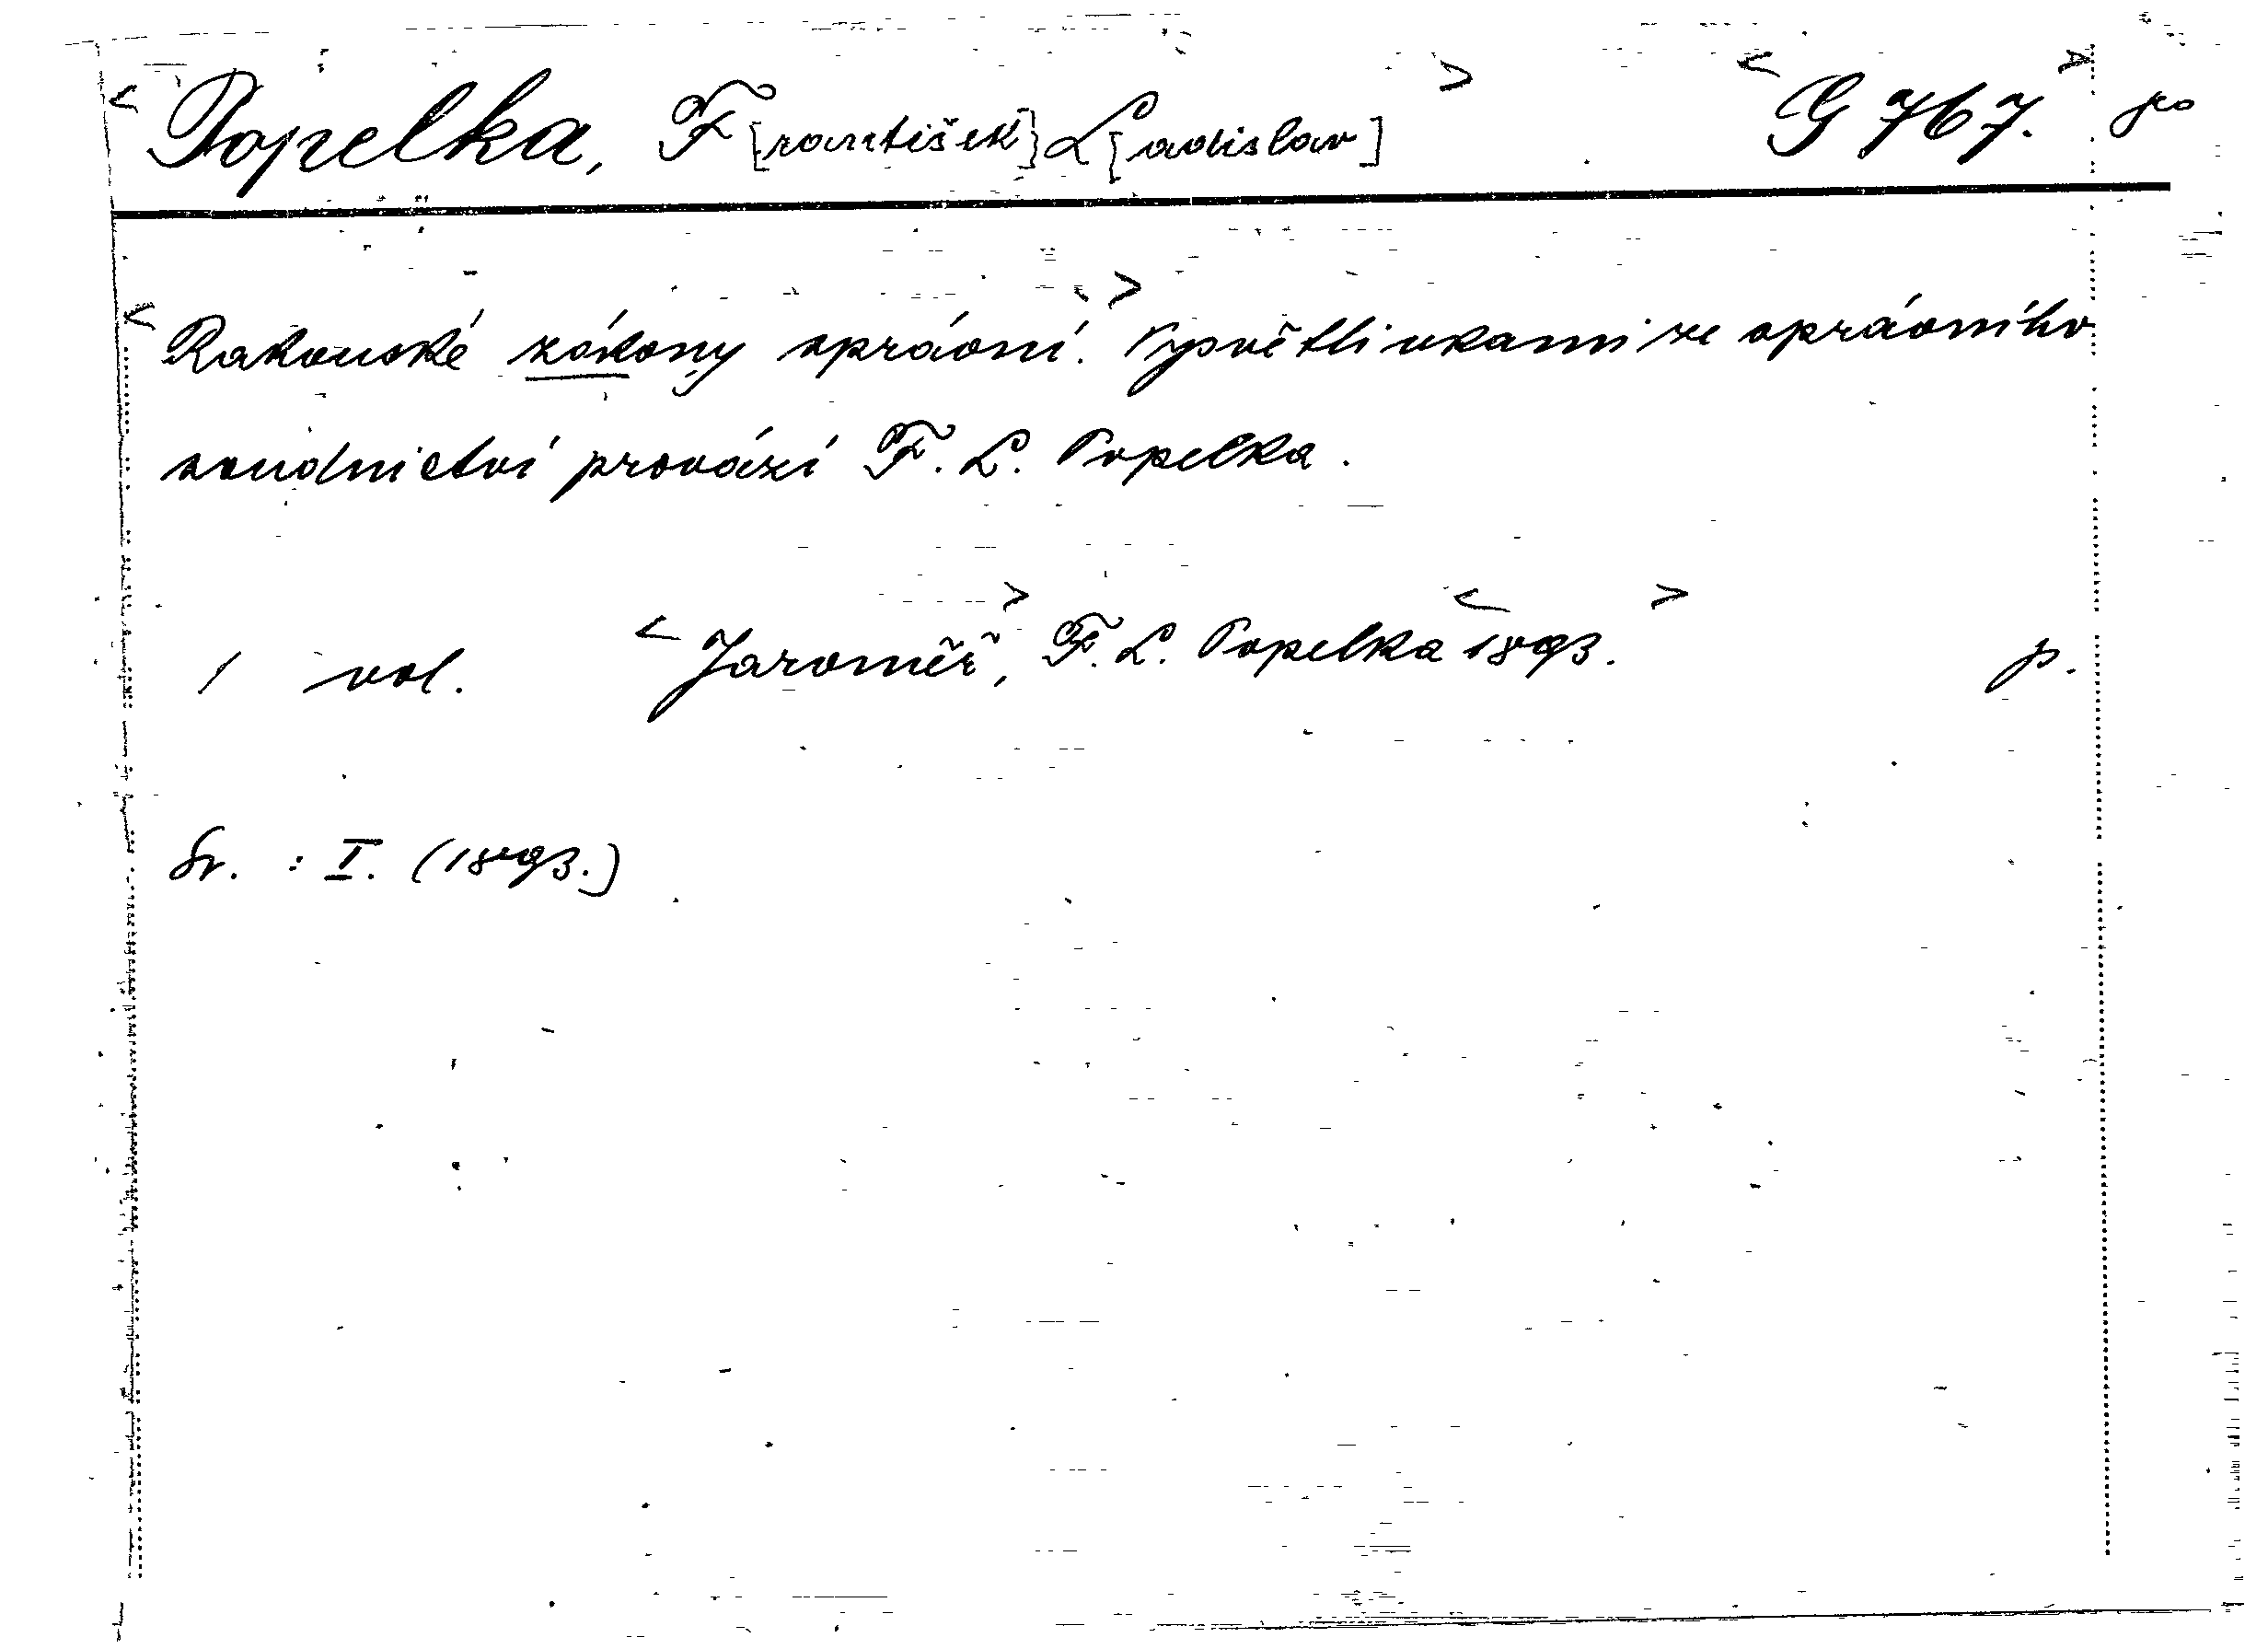 <Popelka, F[rantišek] L[adislav]> <G 767.>
<Rakouské zákony správní.> Vysvětlivkami ze správního
soudnictví provází F. L. Popelka.
1 vol. <Jaroměř,> F. L. Popelka <1893.> p.
Sv. : I. (1893.)